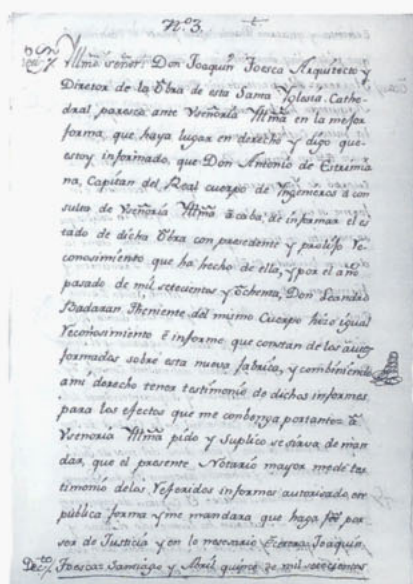 Nº 3.
Yllmô señor: Don Joaquin Foesca Arquitecto y
Diretor de la Obra de esta Santa Yglesia Cathe-
dral paresca ante Vseñoría Yllmâ en la mejor
forma que haya lugar en derecho y digo que
estoy informado, que Don Antonio de Estrimia
na, Capitan del Real cuerpo de Yngenieros à con
sulta de Vseñoría Yllmâ acaba de informar el es
tado de dicha Obra con presedente y prolijo Re
conosimiento que ha hecho de ella, y por el año
pasado de mil, setecientos y Ochenta, Don Leandro
Badaran Theniente del mismo Cuerpo hizo igual
Reconosimiento è informe que constan de los autos
formados sobre esta nueva fabrica, y combiniendo
ami derecho tener testimonio de dichos informes
para los efectos que me combenga portanto= à
Vseñoría Yllmâ pido y Suplico se sirva de man
dar, que el presente Notario mayor medè tes
timonio delos Referidos informes autorizado, en
pública forma y me mandara que haga fèe por
ser de Justicia y en lo nesesario Etcetera: Joaquin
Foesca= Santiago y Abril quinse de mil setecientos